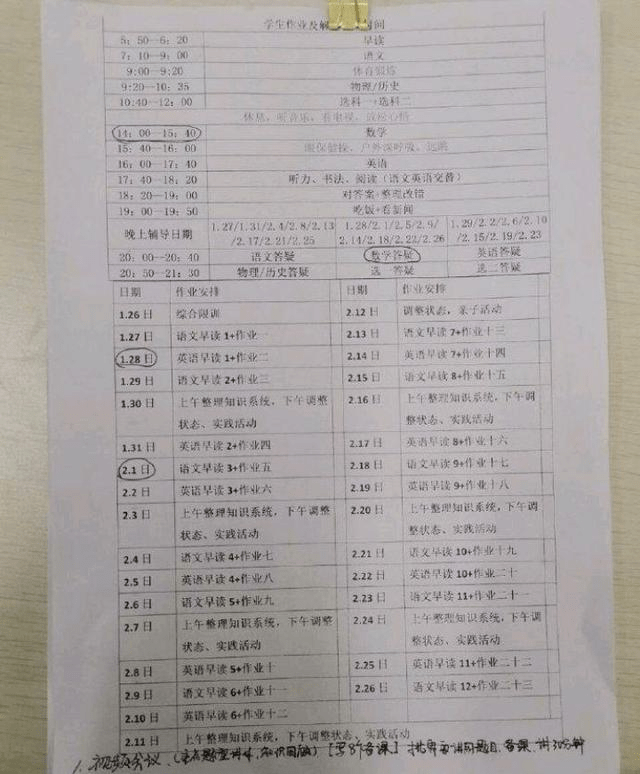 学生作业及解 间
5：50—6：20 早读
7：10—9：00 语文
9:00—9:20 体育锻炼
9:20—10：35 物理/历史
10:40—12：00 选科一+选科二
休息，听音乐，看电视，放松心情
14：00—15：40 数学
15：40—16：00 眼保健操、户外深呼吸、远眺
16：00—17：40 英语
17：40—18：20 听力、书法、阅读（语文英语交替）
18：20—19：00 对答案+整理改错
19：00—19：50 吃饭+看新闻
晚上辅导日期 1.27/1.31/2.4/2.8/2.13 1.28/2.1/2.5/2.9/ 1.29/2.2/2.6/2.10
/2.17/2.21/2.25 2.14/2.18/2.22/2.26 /2.15/2.19/2.23
20：00—20：40 语文答疑 数学答疑 英语答疑
20：50—21：30 物理/历史答疑 选一答疑 选二答疑
日期 作业安排 日期 作业安排
1.26 日 综合限训 2.12 日 调整状态，亲子活动
1.27 日 语文早读 1+作业一 2.13 日 语文早读 7+作业十三
1.28 日 英语早读 1+作业二 2.14 日 英语早读 7+作业十四
1.29 日 语文早读 2+作业三 2.15 日 语文早读 8+作业十五
1.30 日 上午整理知识系统，下午调整 2.16 日 上午整理知识系统，下午调
状态、实践活动 整状态、实践活动
1.31 日 英语早读 2+作业四 2.17 日 英语早读 8+作业十六
2.1 日 语文早读 3+作业五 2.18 日 语文早读 9+作业十七
2.2 日 英语早读 3+作业六 2.19 日 英语早读 9+作业十八
2.3 日 上午整理知识系统，下午调整 2.20 日 上午整理知识系统，下午调
状态、实践活动 整状态、实践活动
2.4 日 语文早读 4+作业七 2.21 日 语文早读 10+作业十九
2.5 日 英语早读 4+作业八 2.22 日 英语早读 10+作业二十
2.6 日 语文早读 5+作业九 2.23 日 语文早读 11+作业二十一
2.7 日 上午整理知识系统，下午调整 2.24 日 上午整理知识系统，下午调
状态、实践活动 整状态、实践活动
2.8 日 英语早读 5+作业十 2.25 日 英语早读 11+作业二十二
2.9 日 语文早读 6+作业十一 2.26 日 语文早读 12+作业二十三
2.10 日 英语早读 6+作业十二
2.11 日 上午整理知识系统，下午调整状态、实践活动
1. 视频会议、 备课 讲问题目、备课、讲30分钟